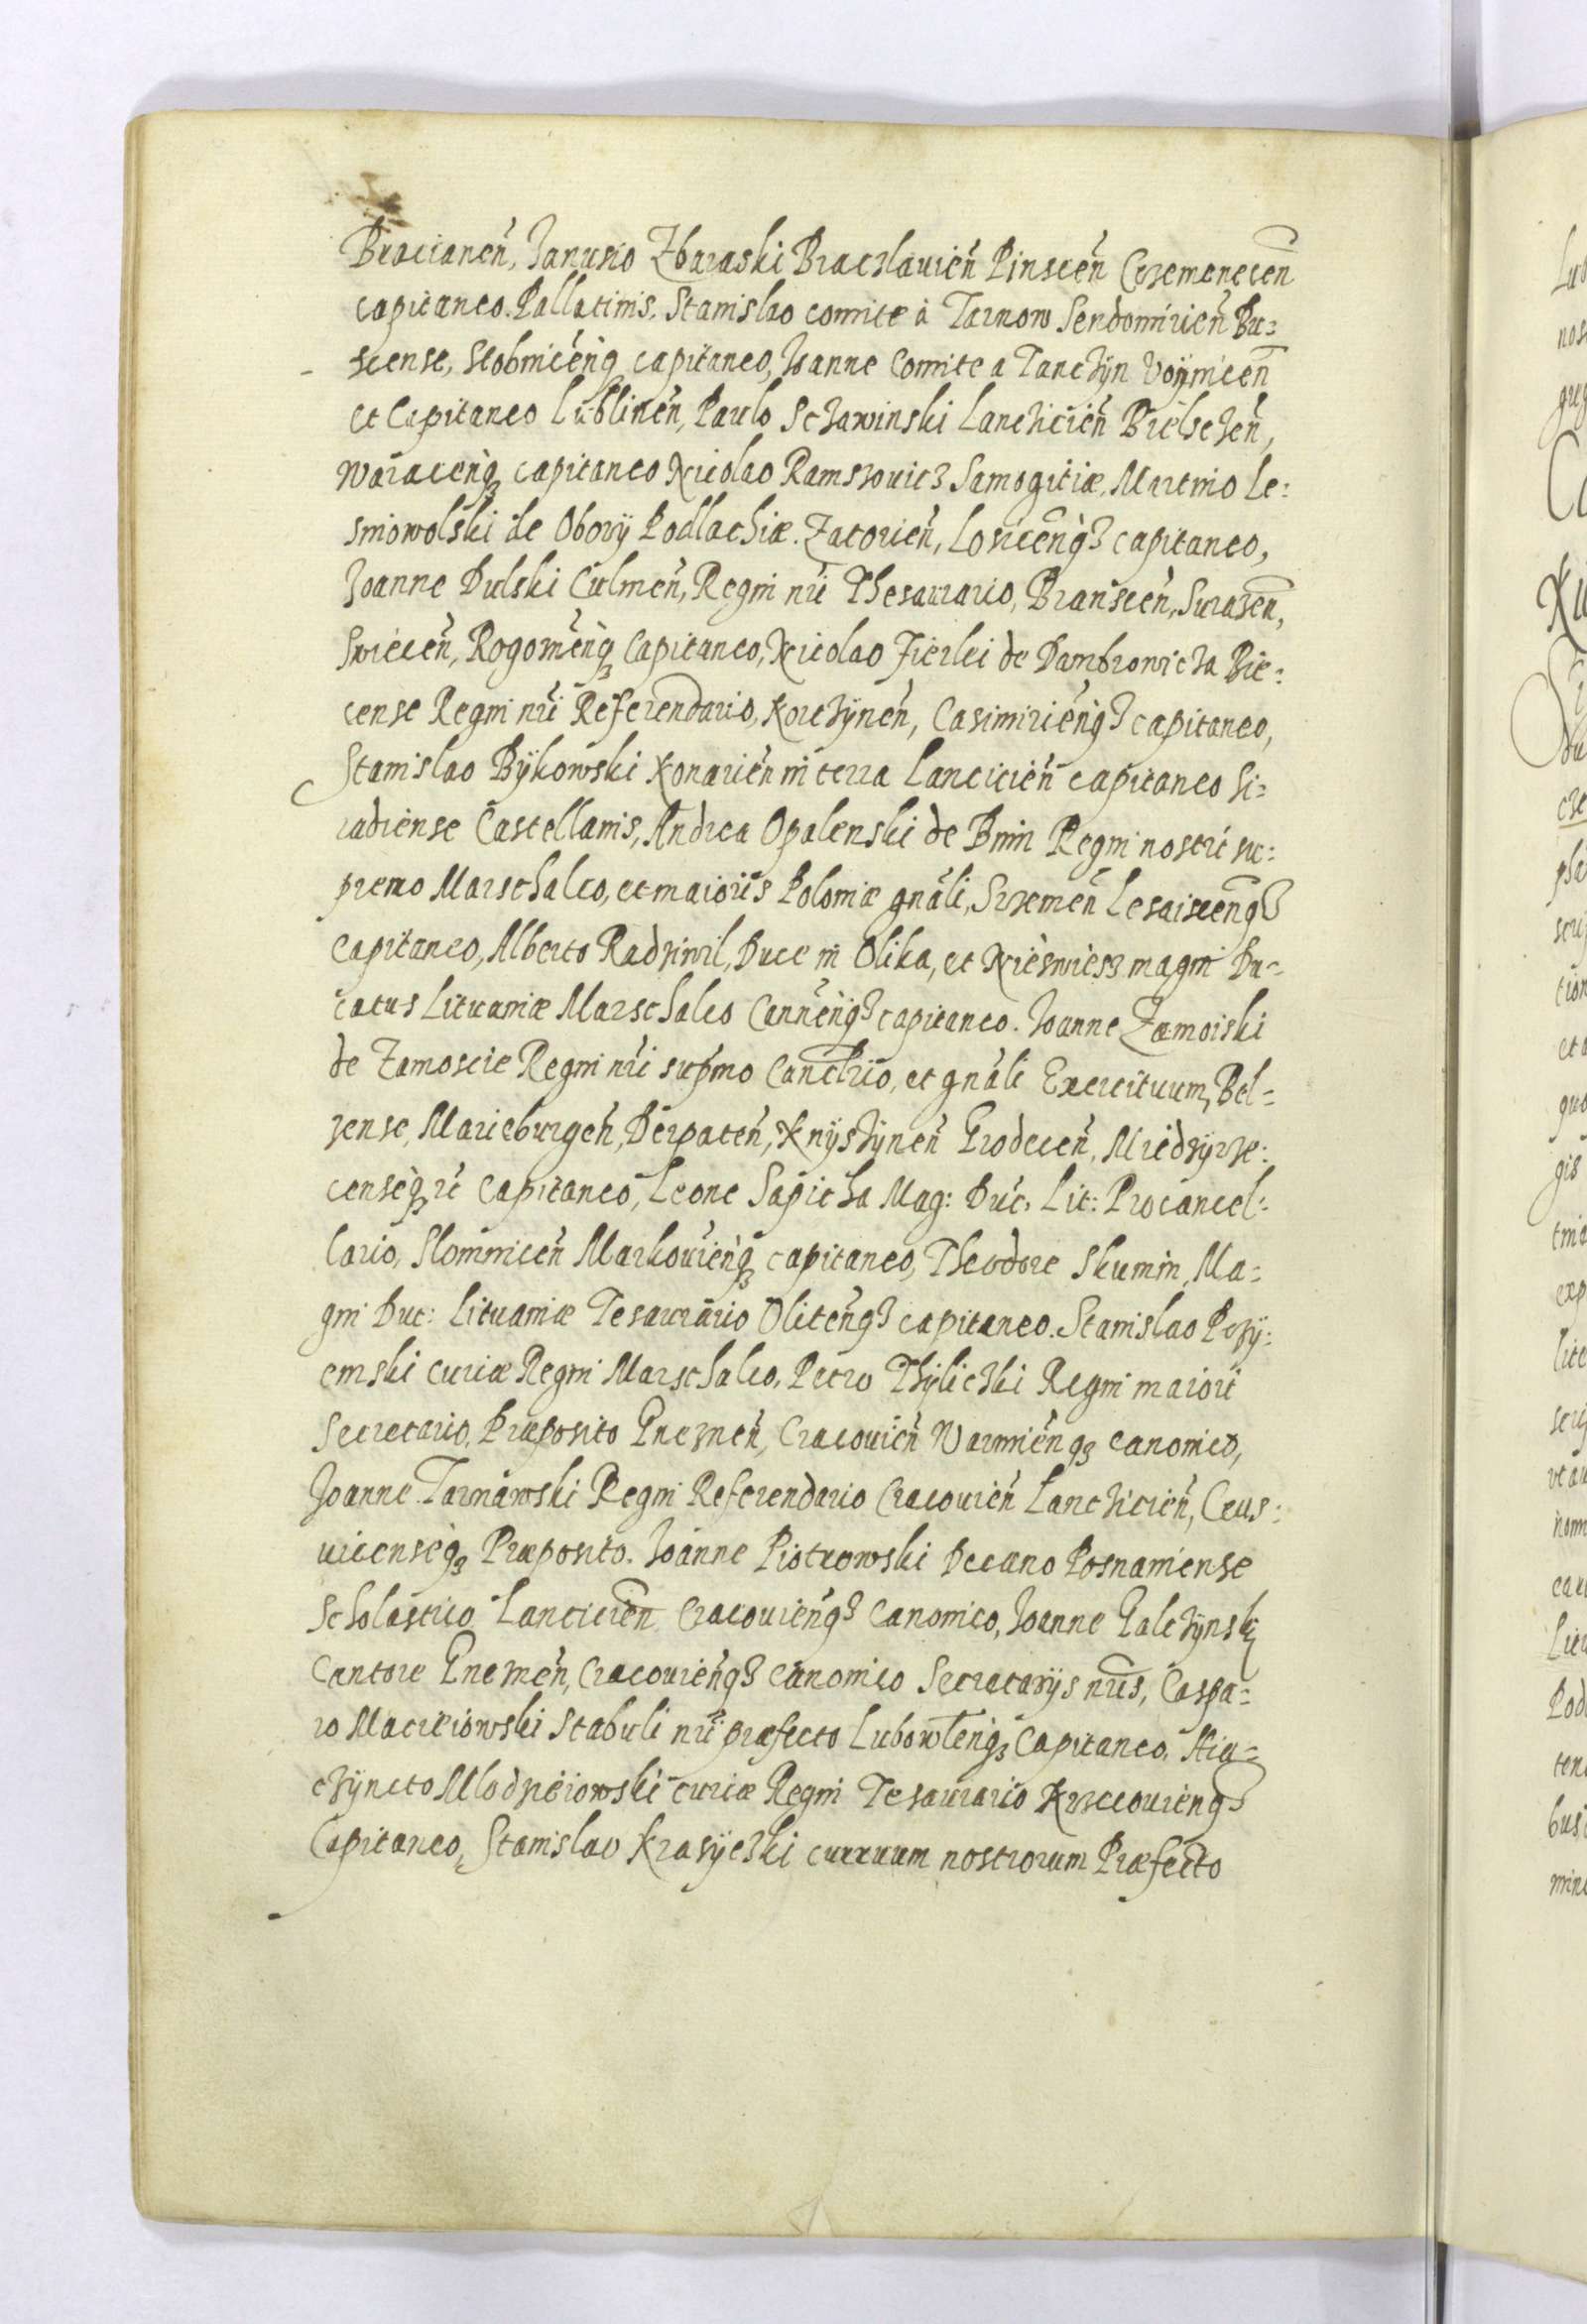 Bracianen̄, Janusio Zbaraski Braczlauien̄ Pinscen̄ Cezemenecen̄
capitaneo. Pallatinis. Stanislao comite à Tarnow Sendomirien̄ Bu=
scense, Stobnicen̄q; capitaneo, Joanne Comite a Tanchÿn Voÿnicen̄
et Capitaneo Lublinen̄, Paulo Schawinski Lanchicien̄ Bielschen̄,
Waracen̄q; capitaneo Nicolao Ramszouicz Samogitiæ, Martino Le=
sniowolski de Oborÿ Podlachiæ. Zatorien̄, Losicen̄q3 capitaneo,
Joanne Dulski Culmen̄, Regni nr̄i Thesaurario, Branscen̄, Surasen̄,
Swiecen̄, Rogomen̄q; Capitaneo, Nicolao Fierlei de Dambrowicha Bie=
cense Regni nr̄i Referendario, Korchÿnen̄, Casimirien̄q3 capitaneo,
Stanislao Bÿkowski Konarien̄ in terra Lancicien̄ capitaneo Si=
radiense Castellanis, Andrea Opalenski de Bnin Regni nostri su=
premo Marschalco, et maioris Poloniæ gnāli, Srzemen̄ Lesaiscen̄q3
Capitaneo, Alberto Radziwil, Duce in Olika, et Nieswiesz magni Du=
catus Lituaniæ Marschalco Cannen̄q3 capitaneo. Joanne Zamoiski
de Zamoscie Regni nr̄i sup̄mo Cancell̄rio, et gnāli Exercituum, Bel=
zense, Marieburgen̄, Derpaten̄, Knÿschÿnen̄ Grodecen̄, Miedzÿrze=
censeq; rē Capitaneo, Leone Sapieha Mag: Duc: Lit: Procancel=
lario, Slonimicen̄ Markouien̄q; capitaneo, Theodore Skumin, Ma=
gni Duc: Lituaniæ Tesaurario Oliten̄q3 capitaneo. Stanislao Przÿ=
emski curiæ Regni Marschalco, Petro Thÿlichki Regni maiori
Secretario, Præposito Gneznen̄, Cracouien̄ Warmien̄q3 canonico,
Joanne Tarnawski Regni Referendario Cracouien̄ Lanchicien̄, Crus=
uicenseq3 Præposito. Joanne Piotrowski Decano Posnaniense
Scholastico Lancicien̄ Cracouien̄q3 Canonico, Joanne Galchÿnski
Cantore Gneznen̄, Cracouien̄q3 canonico Secretarÿs nr̄is, Caspa=
ro Macieiowski Stabuli nr̄i præfecto Lubowlen̄q3 Capitaneo. Hia=
chÿncto Mlodzieiowski curiæ Regni Tesaurario Krzeczouien̄q3
Capitaneo, Stanislao Krasÿchki curruum nostrorum Præfecto